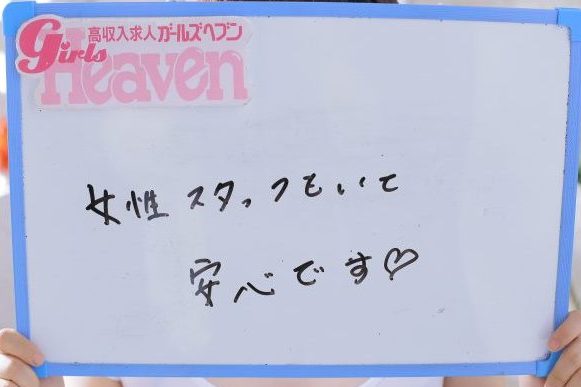 高収入求人ガールズヘブン
Girls
Heaven
女性スタッフもいて
安心です♡